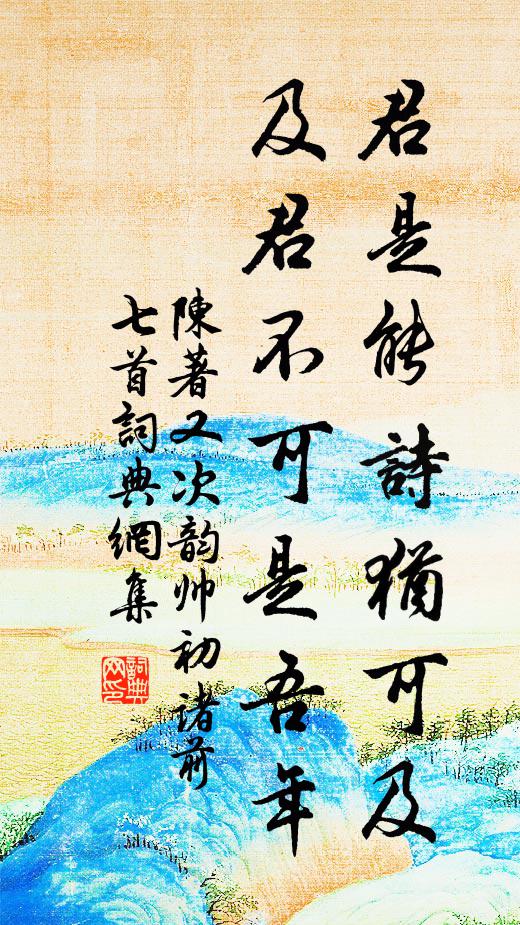 君是能詩猶可及
及君不可是吾年
陳著又次韵帅初諸前
七首詞典網集
詞典
网印